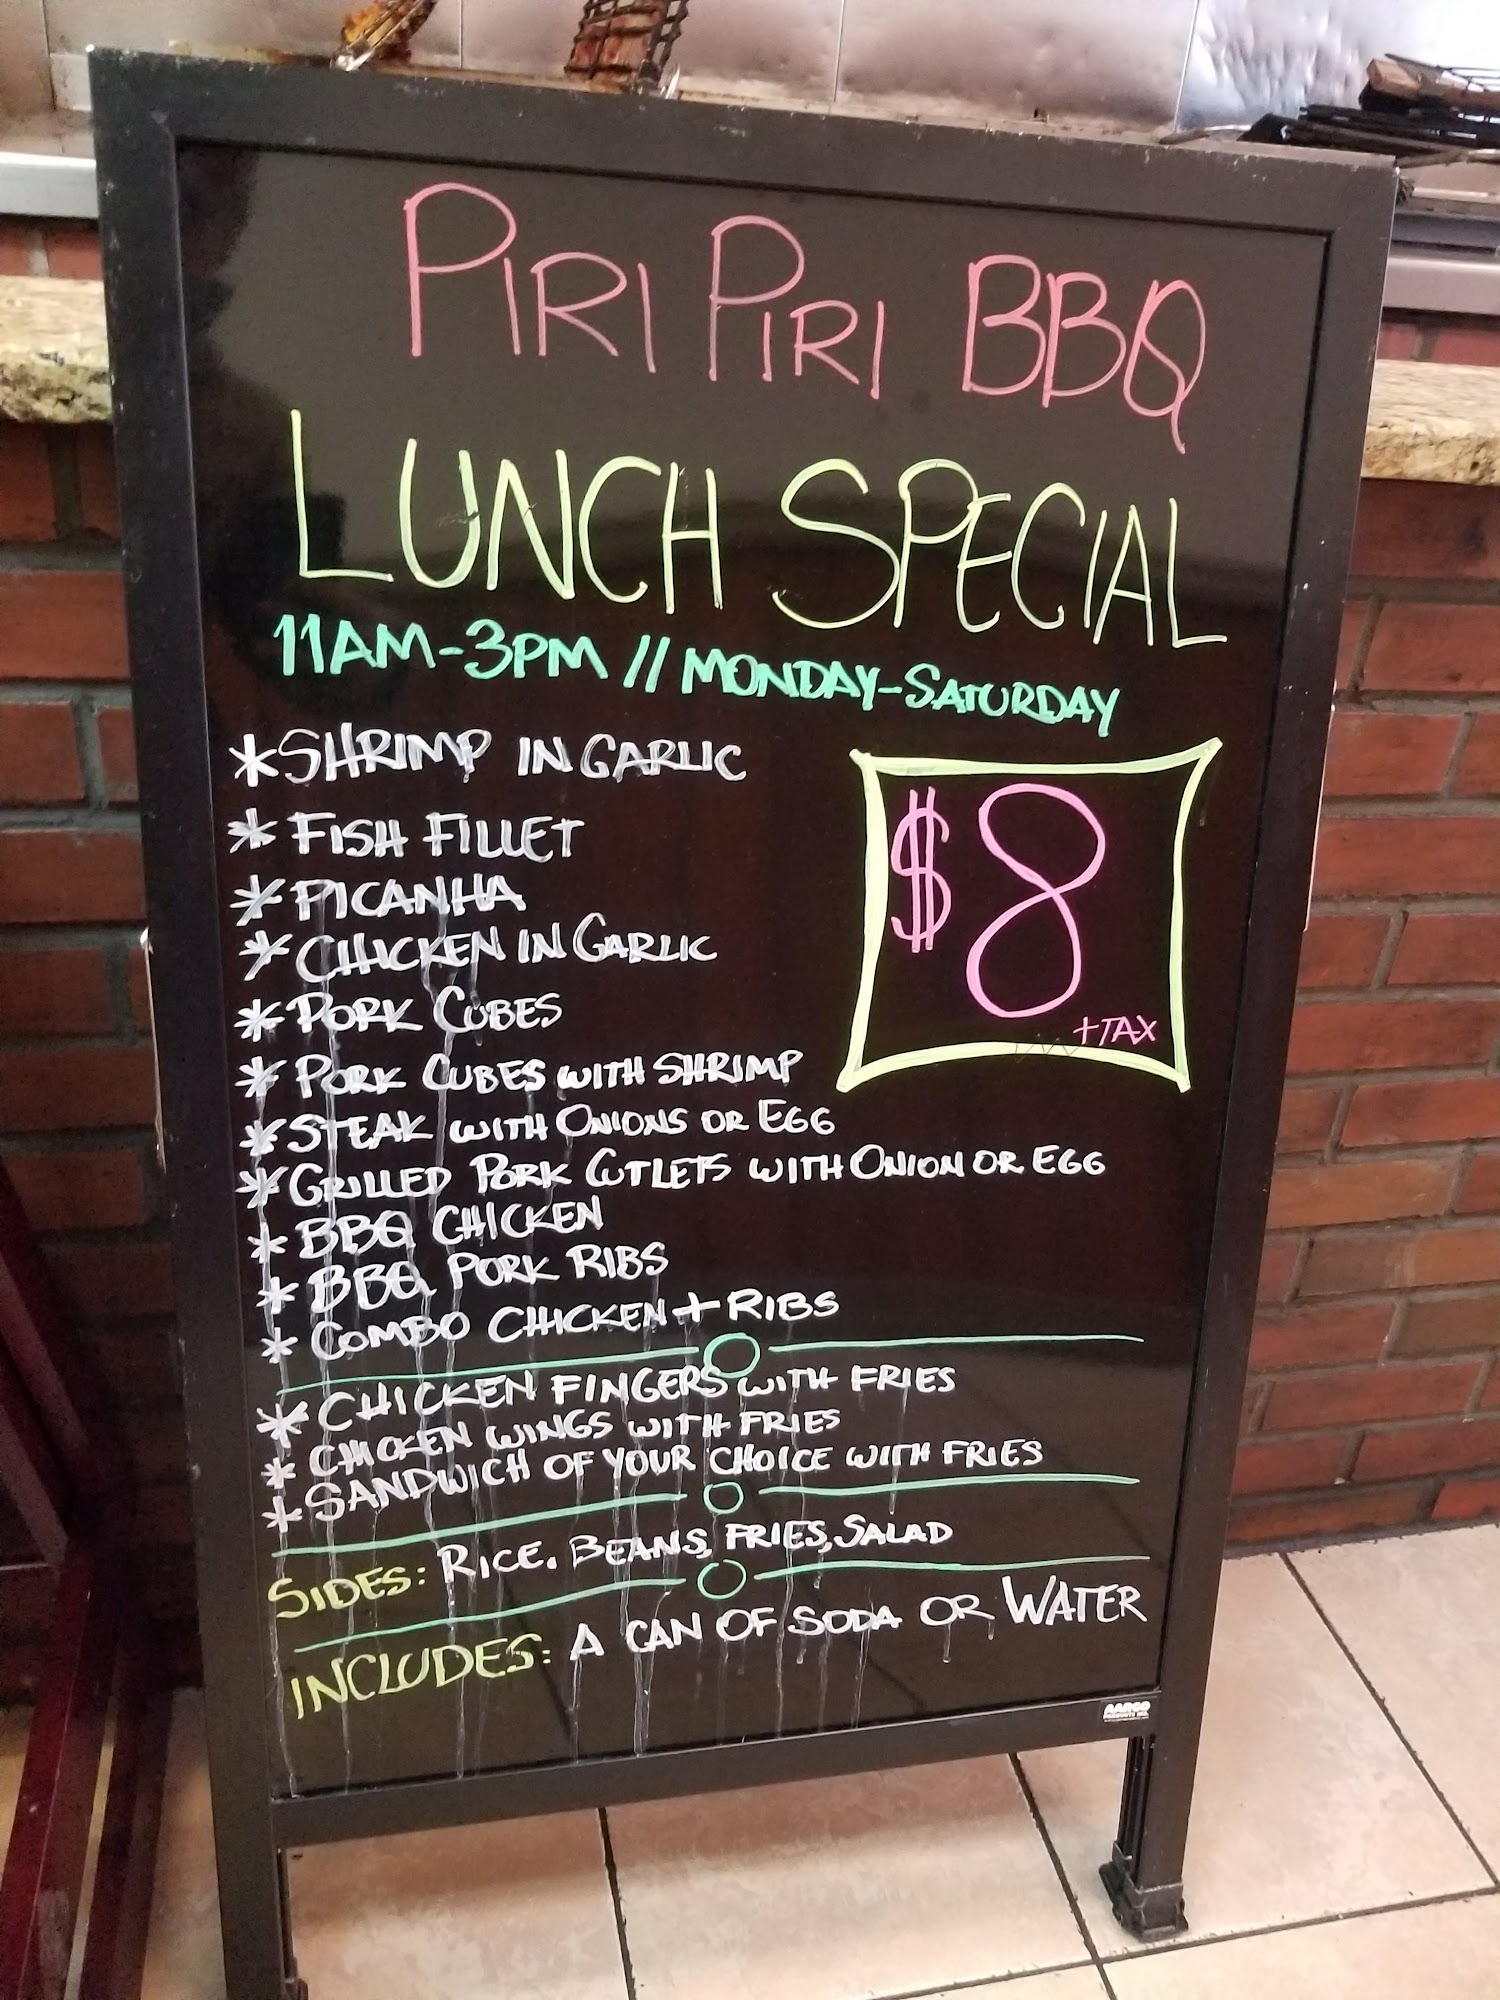 PIRI PIRI BBQ
LUNCH SPECIAL
11AM-3PM // MONDAY-SATURDAY
*SHRIMP IN GARLIC
* FISH FILLET
* PICANHA
* CHICKEN IN GARLIC
* PORK CUBES
* PORK CUBES WITH SHRIMP
* STEAK WITH ONIONS OR EGG
* GRILLED PORK CUTLETS WITH ONION OR EGG
* BBQ CHICKEN
* BBQ PORK RIBS
* COMBO CHICKEN + RIBS
$8
+TAX
* CHICKEN FINGERS WITH FRIES
* CHICKEN WINGS WITH FRIES
* SANDWICH OF YOUR CHOICE WITH FRIES
SIDES: RICE. BEANS, FRIES, SALAD
INCLUDES: A CAN OF SODA OR WATER
AARCO